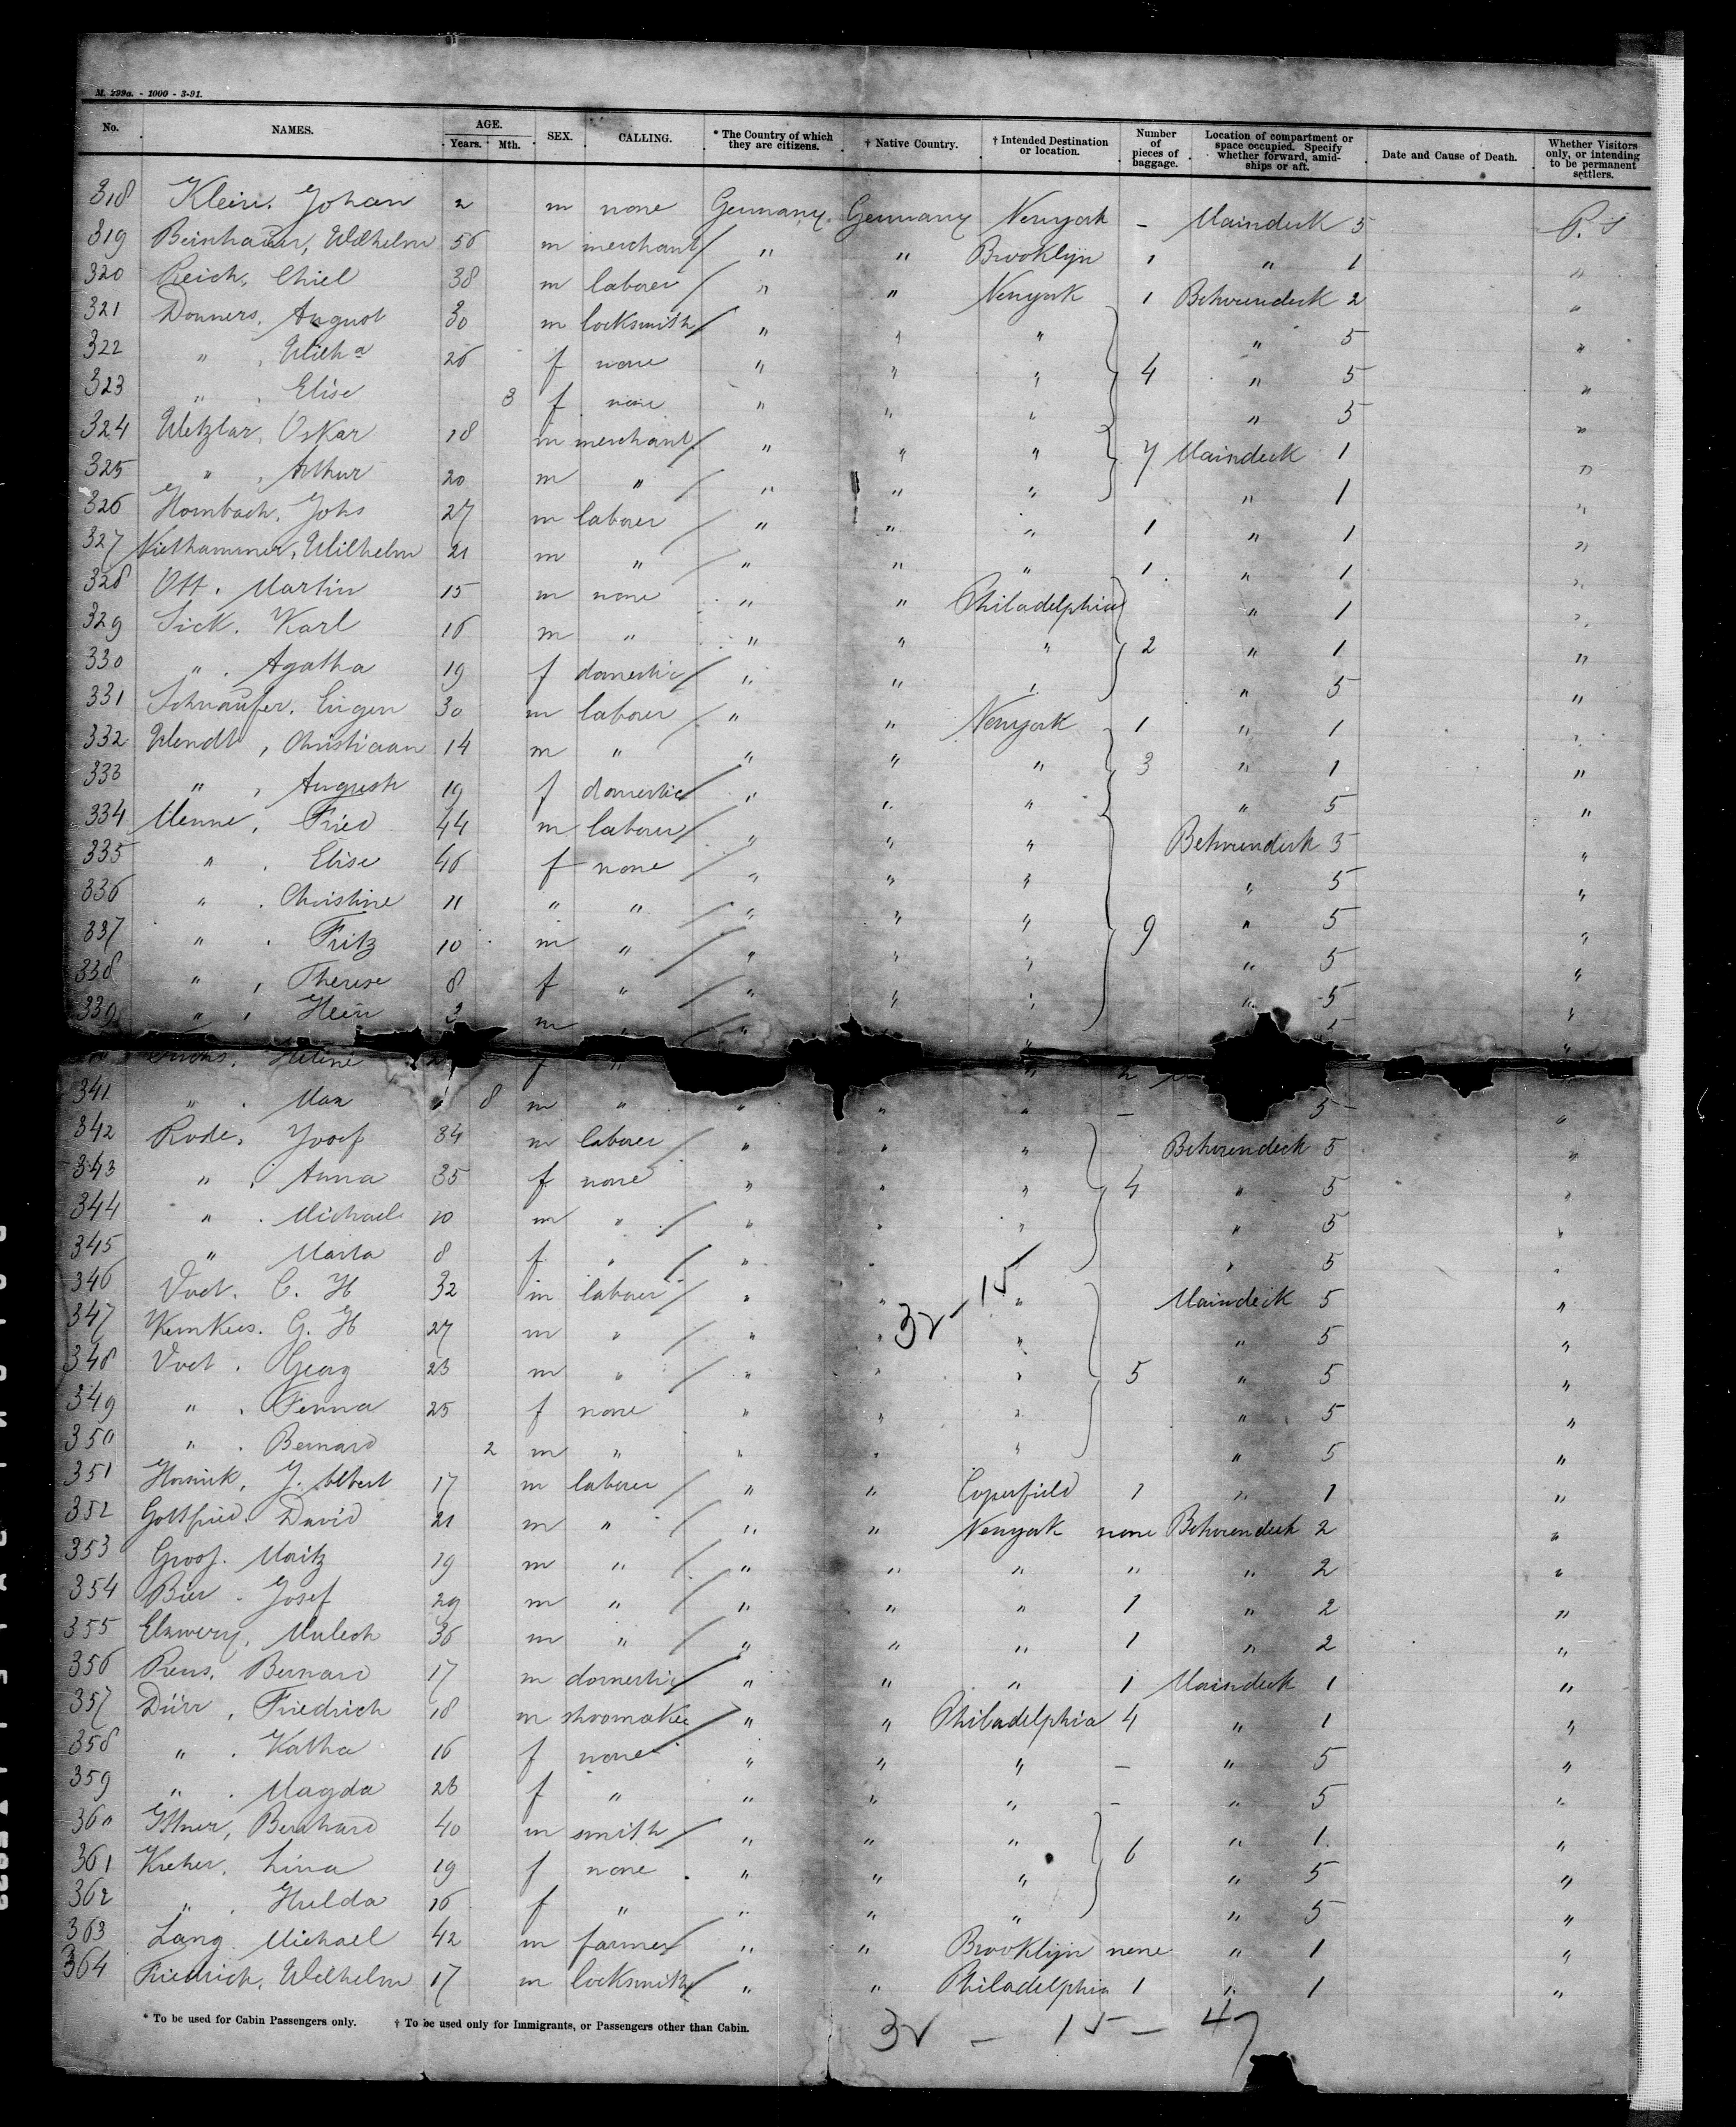 M. 299a. - 1000 - 3-91.
No. NAMES. AGE. Years. Mth. SEX. CALLING. * The Country of which they are citizens. † Native Country. † Intended Destination or location. Number of pieces of baggage. Location of compartment or space occupied. Specify whether forward, amidships or aft. Date and Cause of Death. Whether Visitors only, or intending to be permanent settlers.
318 Klein, Johan 2 m none Germany Germany Newyork - Maindeck 5 P. S
319 Beinhauer, Wilhelm 56 m merchant " " Brooklijn 1 " 1 "
320 Reich, Chiel 38 m laborer " " Newyork 1 Betweendeck 2 "
321 Donners, August 30 m locksmith " " " " 5 "
322 " , Wilh a 26 f none " " " 4 " 5 "
323 " , Elise 3 f none " " " " 5 "
324 Wetzlar, Oskar 18 m merchant " " " 7 Maindeck 1 "
325 " , Arthur 20 m " " " " " 1 "
326 Hornbach, Johs 27 m laborer " " " 1 " 1 "
327 Niethammer, Wilhelm 21 m " " " " 1 " 1 "
328 Ott, Martin 15 m none " " Philadelphia " 1 "
329 Sick, Karl 16 m " " " " 2 " 1 "
330 " , Agatha 19 f domestic " " " " 5 "
331 Schnaufer, Eugen 30 m laborer " " Newyork 1 " 1 "
332 Wendt, Christiaan 14 m " " " " 3 " 1 "
333 " , August 19 f domestic " " " " 5 "
334 Menne, Fried 44 m laborer " " " Betweendeck 3 "
335 " , Elise 46 f none " " " " 5 "
336 " , Christine 11 " " " " " " 5 "
337 " , Fritz 10 m " " " " 9 " 5 "
338 " , Therese 8 f " " " " " 5 "
339 " , Hein 3 m " " " 5 "
Helene f " "
341 " , Max " 8 m " " " " - 5 "
342 Rode, Josef 34 m laborer " " " Betweendeck 5 "
343 " , Anna 35 f none " " " 4 " 5 "
344 " , Michael 10 m " " " " " 5 "
345 " Marta 8 f " " " " 5 "
346 Voet, C. H 32 m laborer " " " Maindeck 5 "
32 - 15
347 G. H 27 m " " " " " 5 "
348 Voet, Georg 23 m " " " " 5 " 5 "
349 " , Fenna 25 f none " " " " 5 "
350 " , Bernard 2 m " " " " " 5 "
351 J. Albert 17 m laborer " " Coperfield 1 " 1 "
352 Gottfried, David 21 m " " " Newyork none Betweendeck 2 "
353 Moritz 19 m " " " " " " 2 "
354 Bier, Josef 29 m " " " " 1 " 2 "
355 36 m " " " " 1 " 2 "
356 Rens, Bernard 17 m domestic " " " 1 Maindeck 1 "
357 Dürr, Friedrich 18 m shoomaker " " Philadelphia 4 " 1 "
358 " , Katha 16 f none " " " - " 5 "
359 " , Magda 26 f " " " " - " 5 "
360 Ittner, Bernhard 40 m smith " " " " 1 "
361 Kreher, Lina 19 f none " " " 6 " 5 "
362 " , Hulda 16 f " " " " " 5 "
363 Lang Michael 42 m farmer " " Brooklijn none " 1 "
364 Friedrich, Wilhelm 17 m locksmith " " Philadelphia 1 " 1 "
* To be used for Cabin Passengers only. † To be used only for Immigrants, or Passengers other than Cabin.
32 - 15 - 47